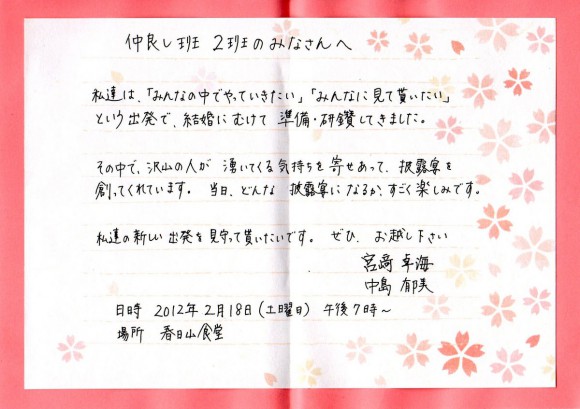 仲良し班 2班のみなさんへ
私達は、「みんなの中でやっていきたい」「みんなに見て貰いたい」
という出発で、結婚にむけて 準備・研鑽してきました。
その中で、沢山の人が 湧いてくる気持ちを寄せあって、披露宴を
創ってくれています。 当日、どんな 披露宴になるか、すごく楽しみです。
私達の新しい出発を見守って貰いたいです。 ぜひ、お越し下さい
宮﨑 卓海
中島 郁美
日時 2012年2月18日(土曜日) 午後7時~
場所 春日山食堂